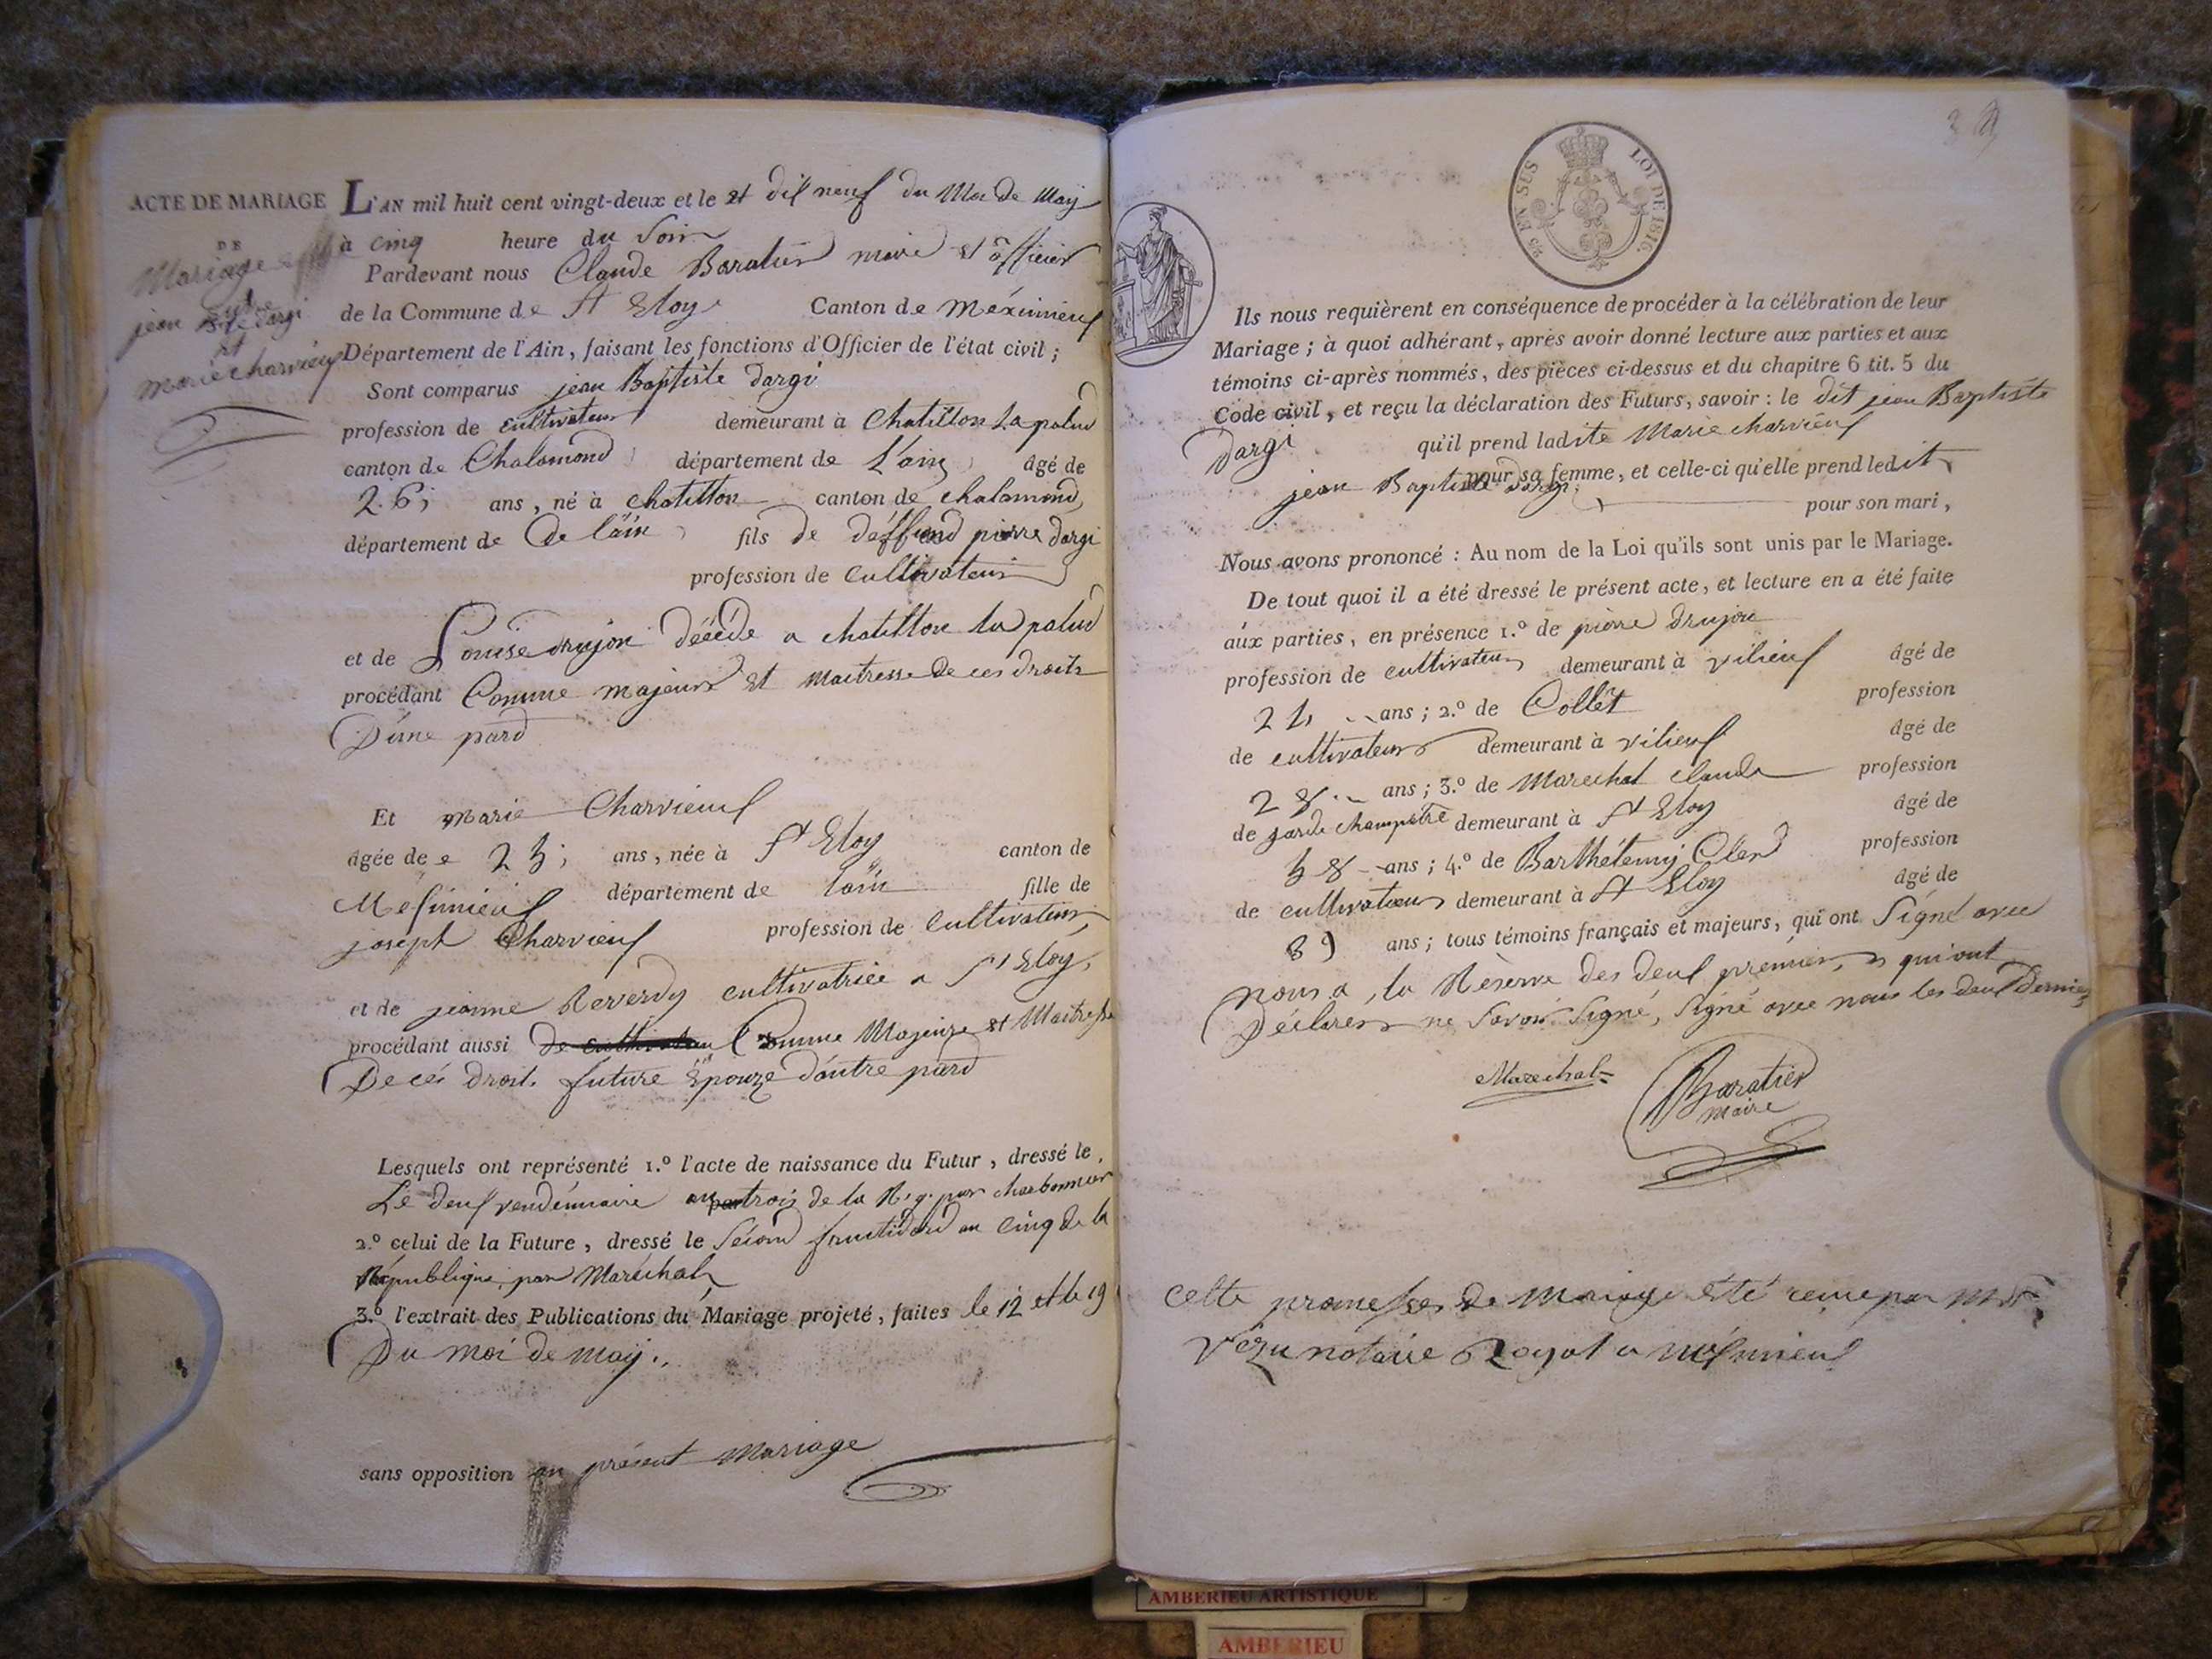 ACTE DE MARIAGE
DE
Mariage
entre
jean Bte dargi
et
marie charvieux
L'AN mil huit cent vingt-deux et le et dix neuf du Moi de Maij
à cinq heure du Soir
Pardevant nous Claude Baratier maire et officier
de la Commune de St Eloy Canton de Méximieux
Département de l'Ain, faisant les fonctions d'Officier de l'état civil ;
Sont comparus jean Baptiste dargi
profession de cultivateur demeurant à Chatillon La palud
canton de Chalamond département de L'ain âgé de
26 ans, né à chatillon canton de chalamond
département de De lain fils de deffund pierre dargi
profession de cultivateur
et de Louise drujon décéde a chatillon la palud
procédant Comme majeur et maitresse de ces droits
D'une pard
Et marie Charvieux
âgée de 25 ans, née à St Eloy canton de
Mesimieux département de lain fille de
joseph Charvieux profession de cultivateur
et de jeanne Reverdy cultivatrice a St Eloy
procédant aussi de cultivateur Comme Majeure et Maitresse
De cés droits future Epouze dautre pard
Lesquels ont représenté 1.º l'acte de naissance du Futur, dressé le
Le deux vendémiaire an trois de la R.q. par charbonnier
2.º celui de la Future, dressé le Sécond fructidord an cinq de la
République par Maréchal
3.º l'extrait des Publications du Mariage projeté, faites le 12 et le 19
Du moi de maij
sans opposition au présent Mariage
25 EN SUS
LOI DE 1816.
Ils nous requièrent en conséquence de procéder à la célébration de leur
Mariage ; à quoi adhérant, après avoir donné lecture aux parties et aux
témoins ci-après nommés, des pièces ci-dessus et du chapitre 6 tit. 5 du
Code civil, et reçu la déclaration des Futurs, savoir : le dit jean Baptiste
Dargi qu'il prend ladite Marie charvieux
pour sa femme, et celle-ci qu'elle prend ledit
jean Baptiste dargi pour son mari,
Nous avons prononcé : Au nom de la Loi qu'ils sont unis par le Mariage.
De tout quoi il a été dressé le présent acte, et lecture en a été faite
aux parties, en présence 1.º de pierre drujon
profession de cultivateur demeurant à vilieux âgé de
ans ; 2.º de Collêt profession
de cultivateur demeurant à vilieux âgé de
28 ans ; 3.º de Marechal claude profession
de garde champetre demeurant à St Eloy âgé de
58 ans ; 4.º de Barthélemij profession
de cultivateur demeurant à St Eloy âgé de
39 ans ; tous témoins français et majeurs, qui ont Signé avec
nous a la Réserve des deux prémiers qui ont
Déclarer ne Savoir Signé, Signé avec nous les deux Derniers
Marechal
Baratier
maire
Cette promesse de mariage été reçue par
Vezu notaire Royal a mésimieux
AMBERIEU ARTISTIQUE
AMBERIEU